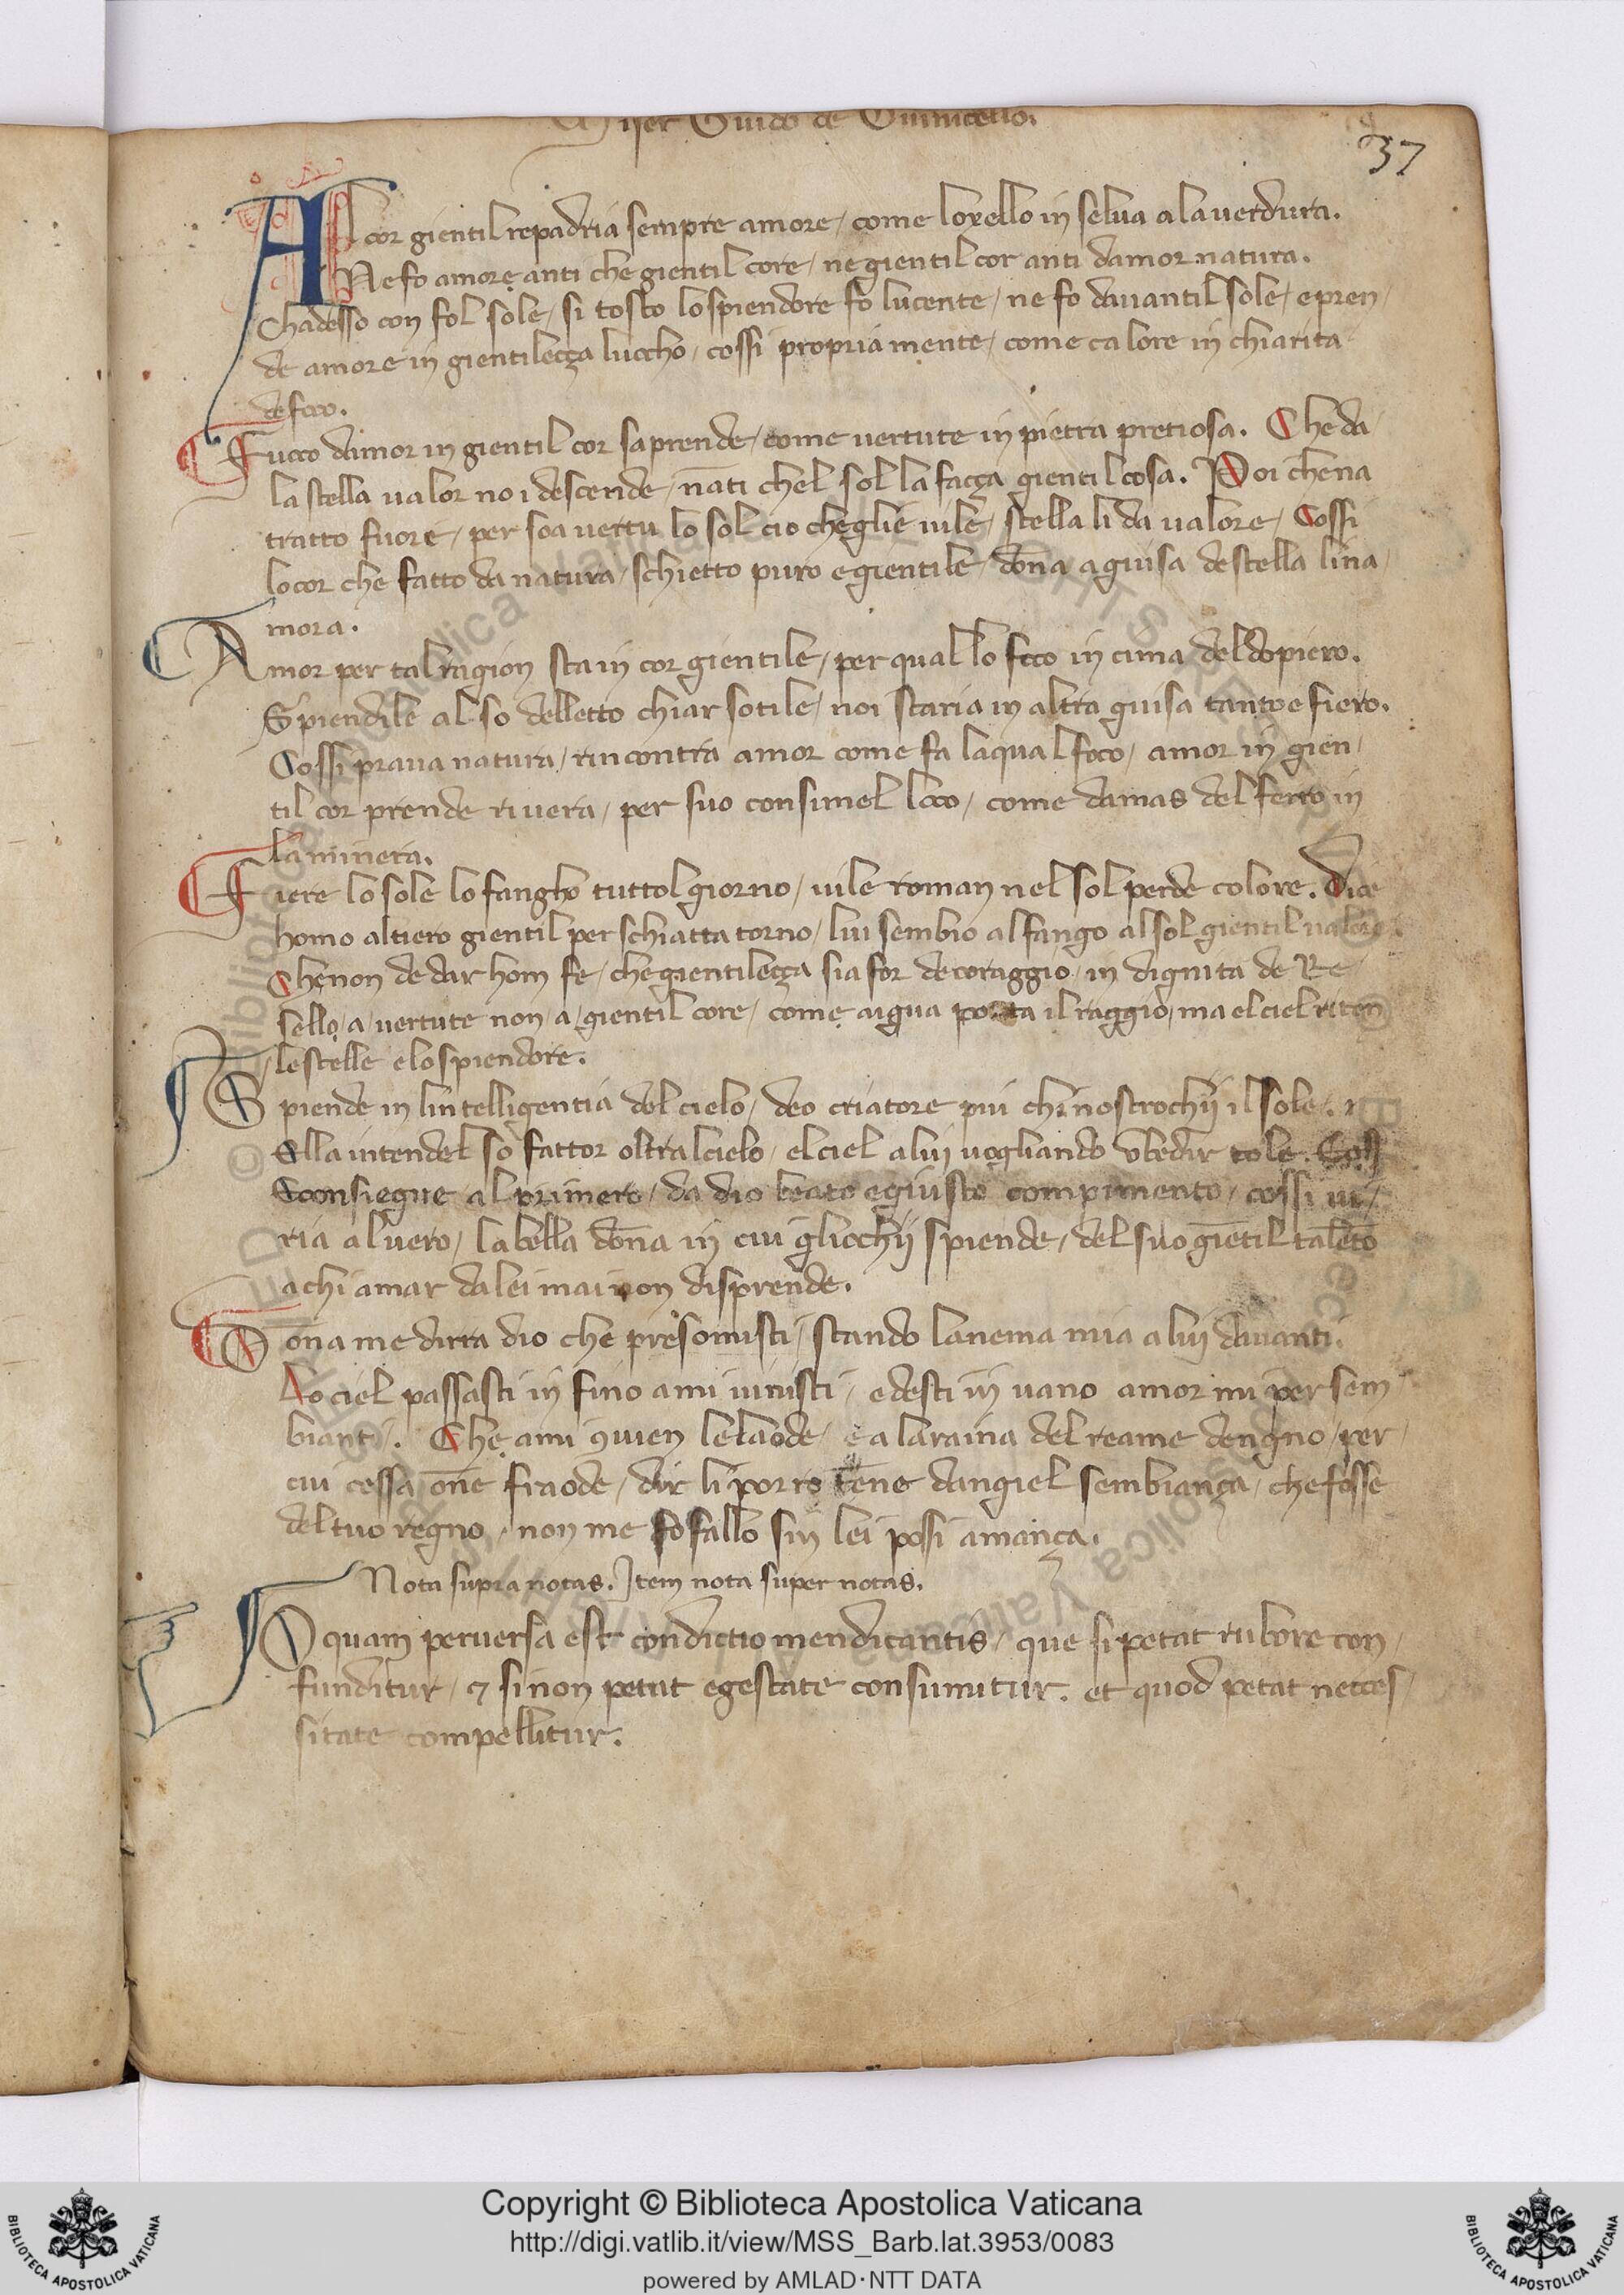 Miser Guido de Guinicello.
37
Al cor gientil repadria sempre amore / come loxello in selva a la verdura.
Ne fo amore anti che gientil core / ne gientil cor anti damor natura.
Chadesso con fol sole / si tosto lo spiendore fo lucente / ne fo davantil sole / e pren /
de amore in gientilecça luccho / cossi propriamente / come calore in chiarita
de foco.
Fuoco damor in gientil cor saprende / come vertute in pietra pretiosa. Che da /
la stella valor no i descende / nāti chel sol la facça gientil cosa. Poi chena
tratto fuore / per soa vertu lo sol cio che glie vile / stella li da valore / Cossi
lo cor che fatto da natura / schietto puro e gientile / dōna a guisa de stella lina /
mora.
Amor per tal ragion sta in cor gientile / per qual lo foco in cima del dopiero.
Spiendile al so delletto chiar sotile / noi staria in altra guisa tanto e fiero.
Cossi prava natura / rincontra amor come fa laqua l foco / amor in gien /
til cor prende rivera / per suo consimel loco / come damas del ferro in
la minera.
Fiere lo sole lo fangho tuttol giorno / vile roman nel sol perde colore. Dice
homo altiero gientil per schiatta torno / lui sembio al fango al sol gientil valore.
Che non de dar hom fe / che gientilecça sia for de coraggio / in dignita de Re /
sello / a / vertute non / a / gientil core / come aigua porta il raggio / ma el ciel riten
le stelle e lo spiendore.
Spiende in lintelligentia del cielo / deo criatore piu chi nostrochij il sole.
Ella intendel so fattor oltral cielo / el ciel a lui vogliando ubedir tole. Coss
Econsiegue al primero / da dio beato e giusto compimento / cossi vi /
ria al vero / la bella dōna in cui gliochij spiende / del suo giētil talēto
a chi amar da lei mai non disprende.
Dona me dirra dio che presomisti / stando lanema mia a lui davanti.
Lo ciel passasti in fino a mi vinisti / e desti in vano amor mi per sem /
bianti. Che a mi 9vien le laode / e a la raina del reame dengno / per /
cui cessa one fraode / dir li porro tēne dangiel sembiança / che fosse
del tuo regno / non me fo fallo sin lei posi amança.
Nota supra notas. Item nota super notas.
O quam perversa est condictio mendicantis / que si petat rubore con /
funditur / 7 si non petat egestate consumitur. et quod petat necces /
sitate compellitur.
Copyright © Biblioteca Apostolica Vaticana
http://digi.vatlib.it/view/MSS_Barb.lat.3953/0083
powered by AMLAD·NTT DATA
BIBLIOTECA APOSTOLICA VATICANA
BIBLIOTECA APOSTOLICA VATICANA